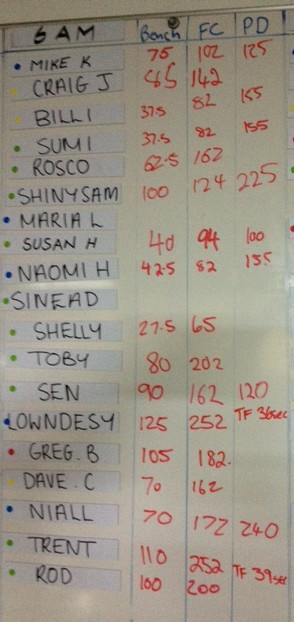 6AM Bench FC PD
MIKE K 75 102 125
CRAIG J 85 142
BILLI 37.5 82 155
SUMI 37.5 82 155
ROSCO 62.5 162
SHINY SAM 100 124 225
MARIA L
SUSAN H 40 94 100
NAOMI H 42.5 82 135
SINEAD
SHELLY 27.5 65
TOBY 80 202
SEN 90 162 120
LOWNDESY 125 252 TF 36sec
GREG.B 105 182.
DAVE.C 70 162
NIALL 70 172 240
TRENT 110 252 TF 39sec
ROD 100 200